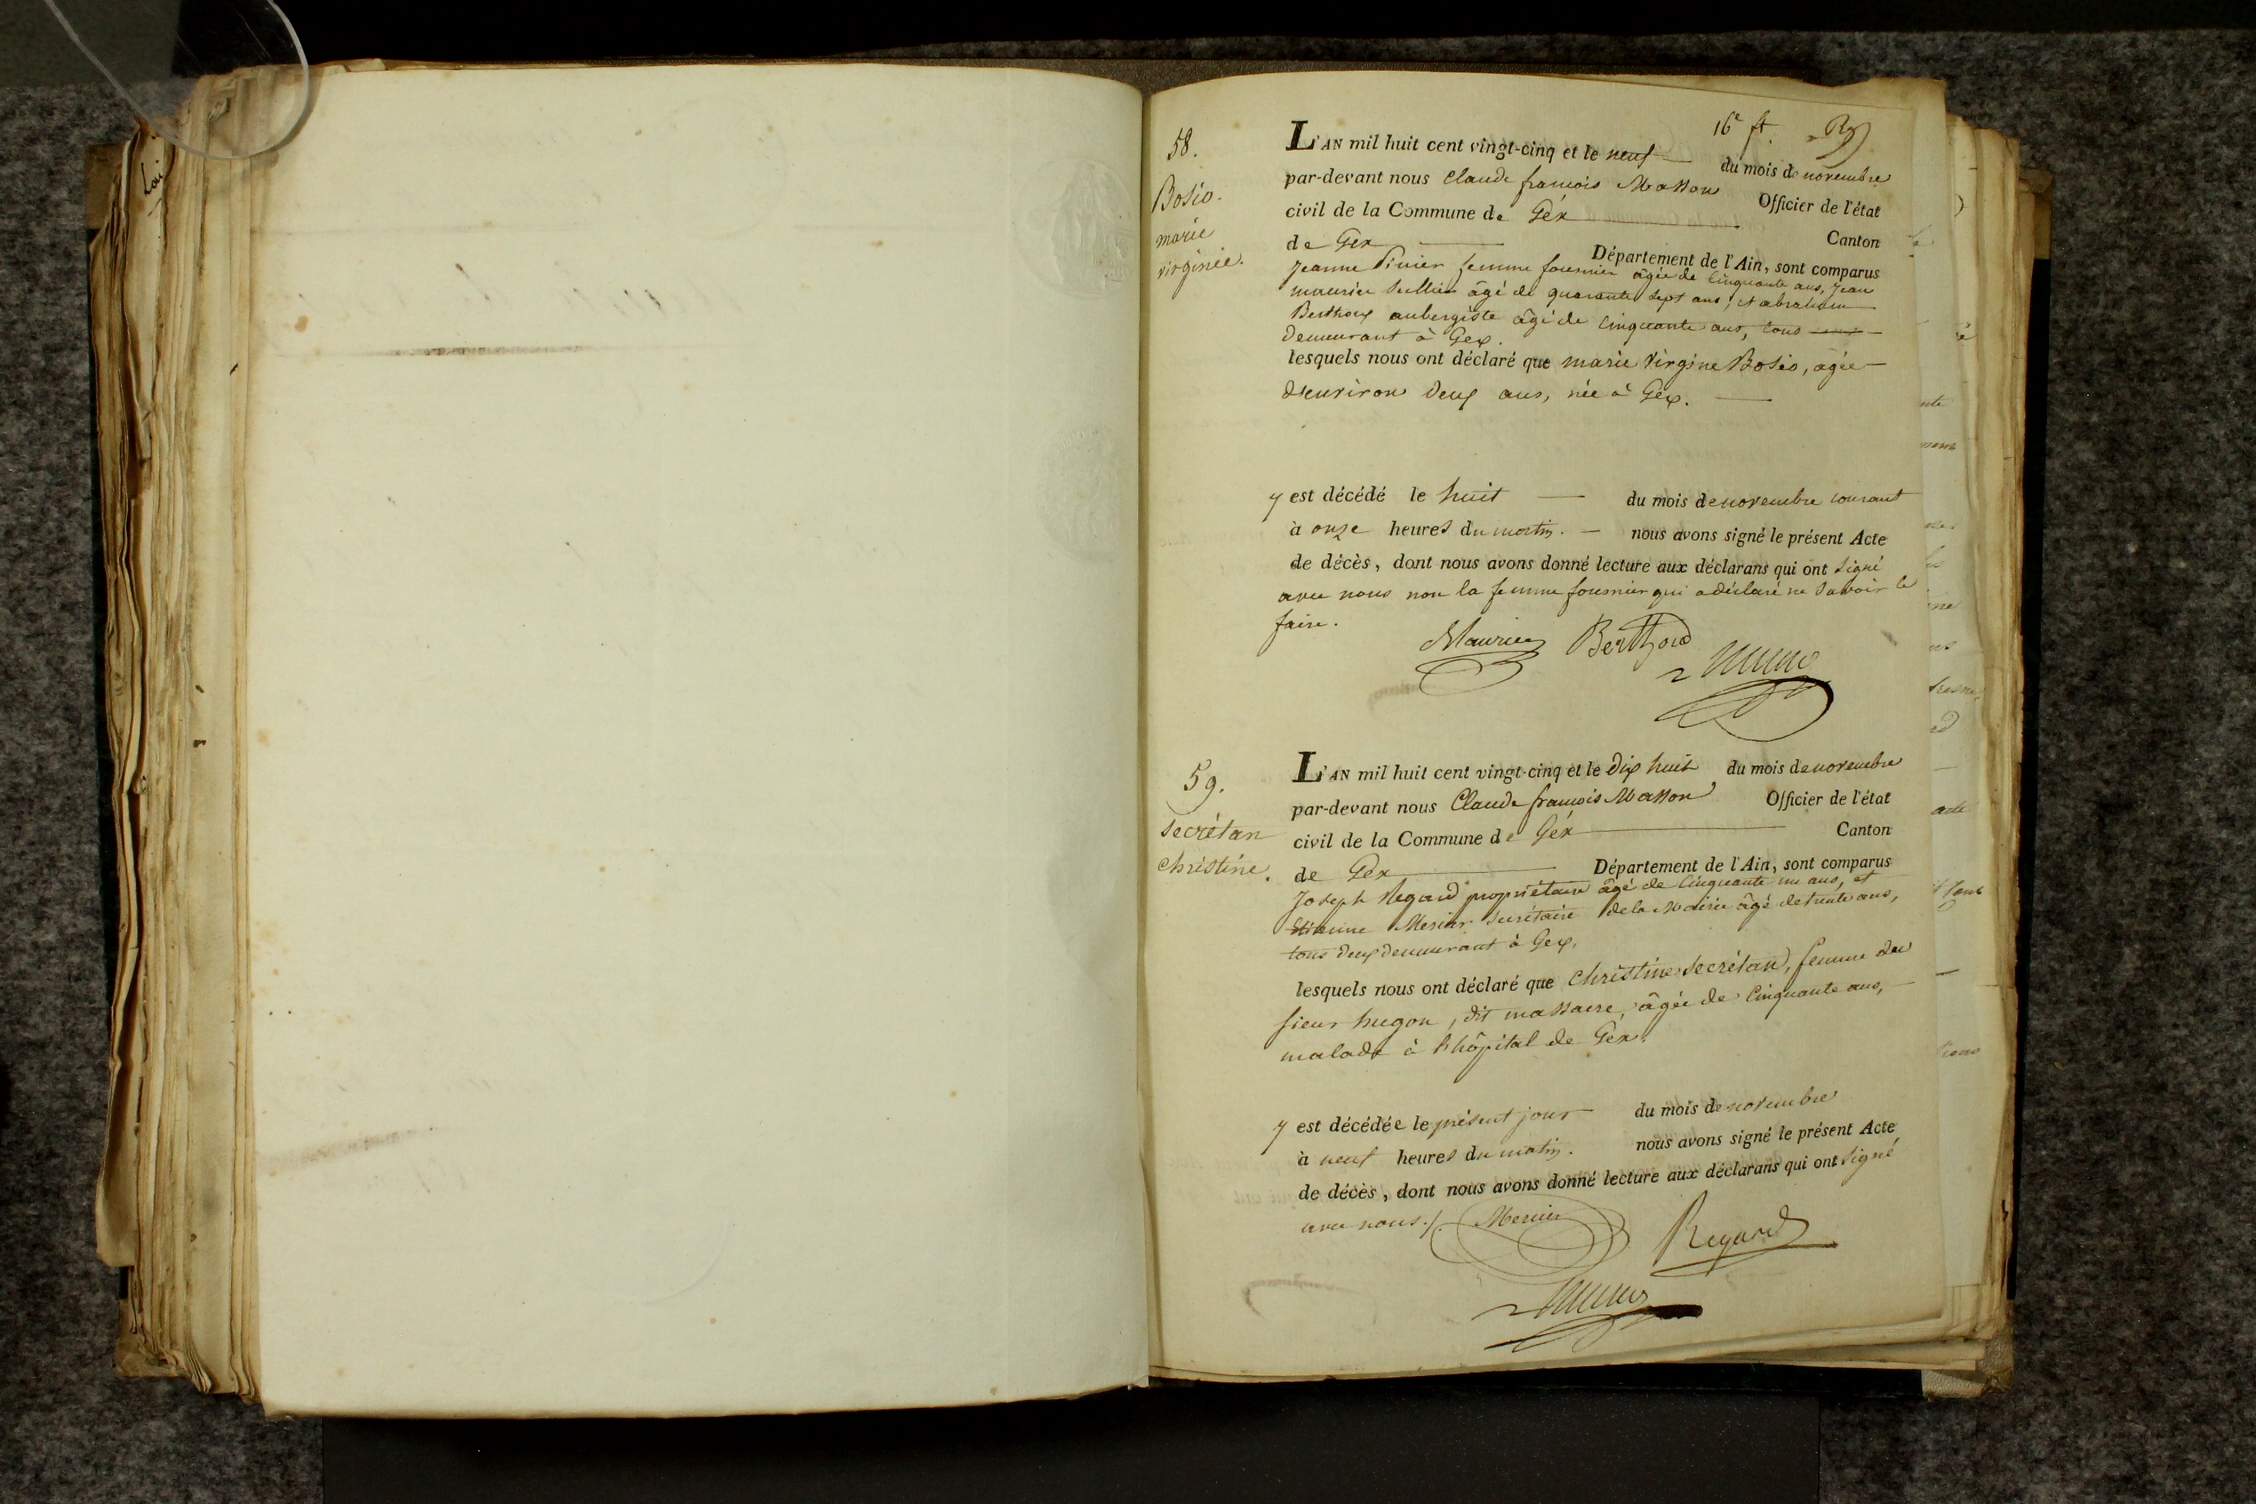 16e ft.
58.
Bosio.
marie
virginie.
L'AN mil huit cent vingt-cinq et le neuf du mois de novembre
par-devant nous Claude francois Masson Officier de l'état
civil de la Commune de Géx Canton
de Gex Département de l'Ain, sont comparus
Jeanne femme fournier âgée de Cinquante ans, Jean
maurier Sellier âgé de quarante sept ans, et abraham
Berthoux aubergiste âgé de Cinquante ans, tous
demeurant à Gex.
lesquels nous ont déclaré que marie Virgine Bosio, agée
d'environ deux ans, née à Gex.
y est décédé le huit du mois de novembre courant
à onze heures du matin. nous avons signé le présent Acte
de décès, dont nous avons donné lecture aux déclarans qui ont signé
avec nous non la femme fournier qui a déclaré ne Savoir le
faire.
Maurier Berthoud
59.
Secrétan
Christine.
L'AN mil huit cent vingt-cinq et le dix huit du mois de novembre
par-devant nous Claude francois Masson Officier de l'état
civil de la Commune de Géx Canton
de Gex Département de l'Ain, sont comparus
Joseph Regard propriétaire âgé de Cinquante un ans, et
Etienne Mercier Secrétaire de la Mairie âgé de trente ans,
tous deux demeurant à Gex.
lesquels nous ont déclaré que Christine Secrétan, femme du
sieur hugon, dit massacre, âgée de Cinquante ans,
malade à l'hôpital de Géx.
y est décédée le présent jour du mois de novembre
à neuf heures du matin. nous avons signé le présent Acte
de décès, dont nous avons donné lecture aux déclarans qui ont signé
avec nous./. Mercier
Regard